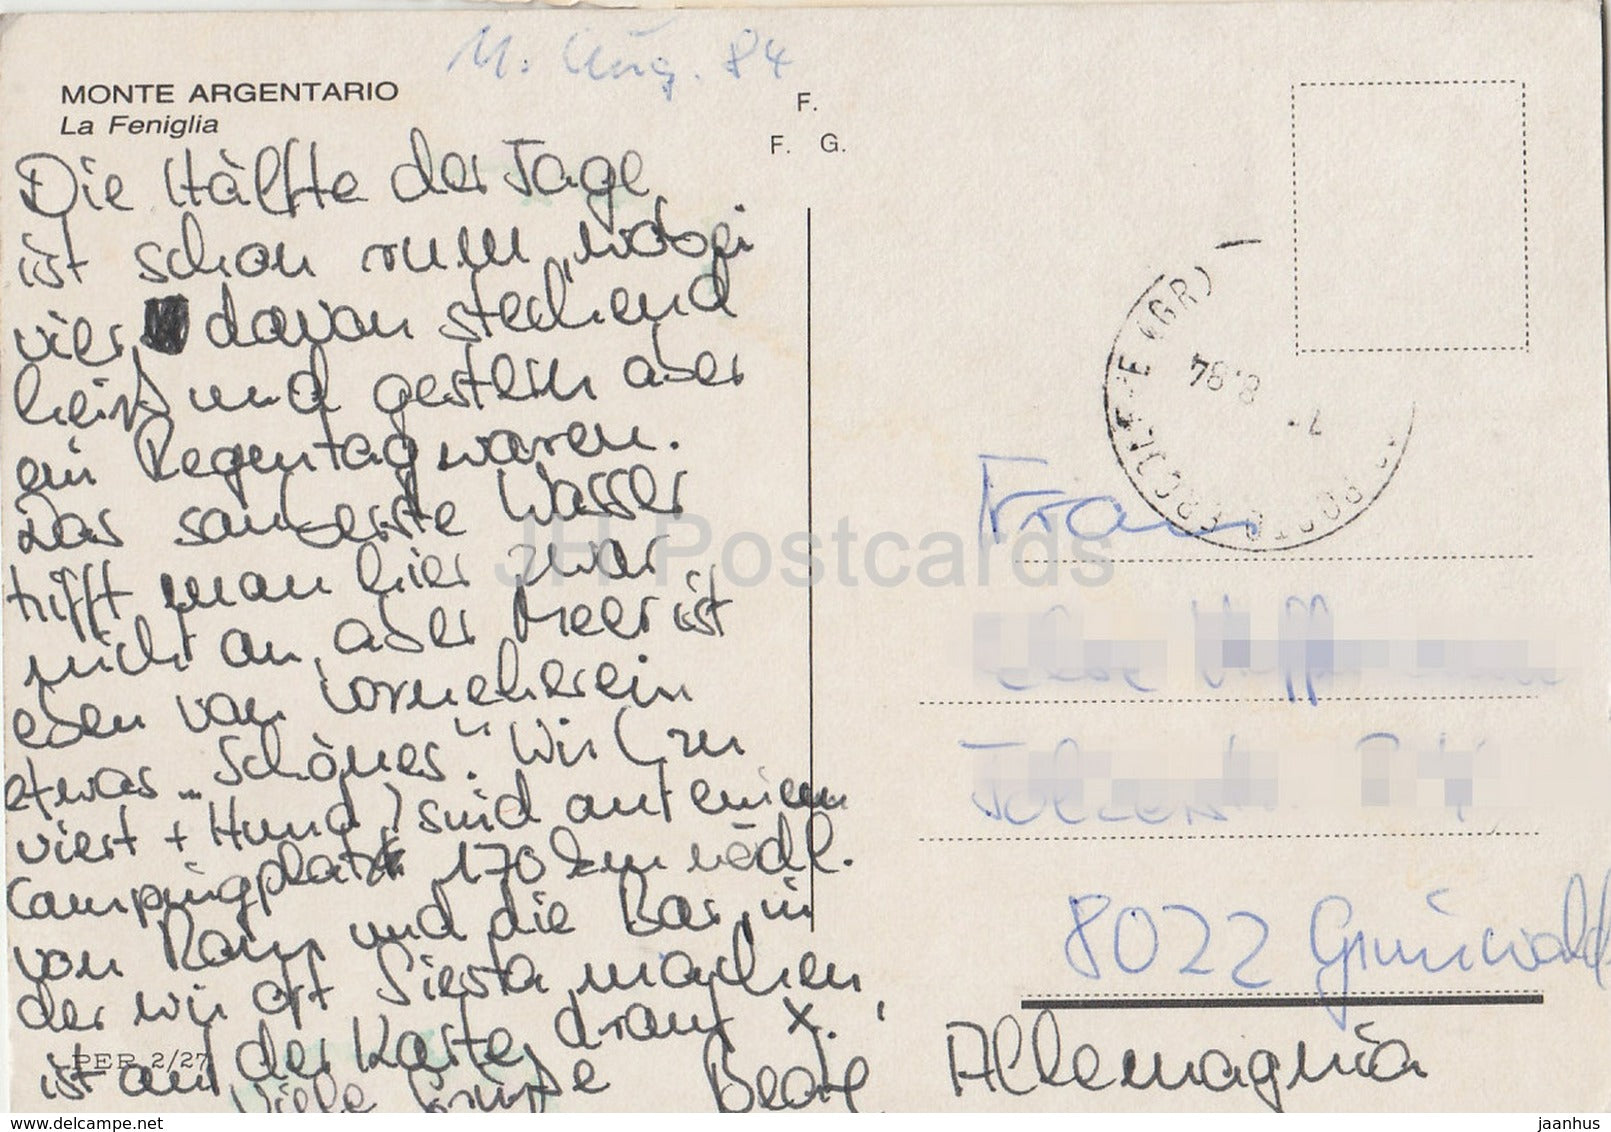 11. Aug. 84
MONTE ARGENTARIO
La Feniglia
F.
F. G.
Die Hälfte der Tage
ist schon rum, wobei
vier davon stechend
heiß und gestern aber
ein Regentag waren.
Das sauberste Wasser
trifft man hier zwar
nicht an, aber Meer ist
eben von vorneherein
etwas „Schönes". Wir (zu
viert + Hund) sind auf einem
Campingplatz 170 km nödl.
von Rom und die Bar, in
der wir oft Siesta machen,
ist auf der Karte drauf X.
Viele Grüße Beate
PER 2/27
7.8.84
PORTO ERCOLE (GR)
Frau
8022 Grünwald
Allemagnia
JH Postcards
www.delcampe.net
jaanhus